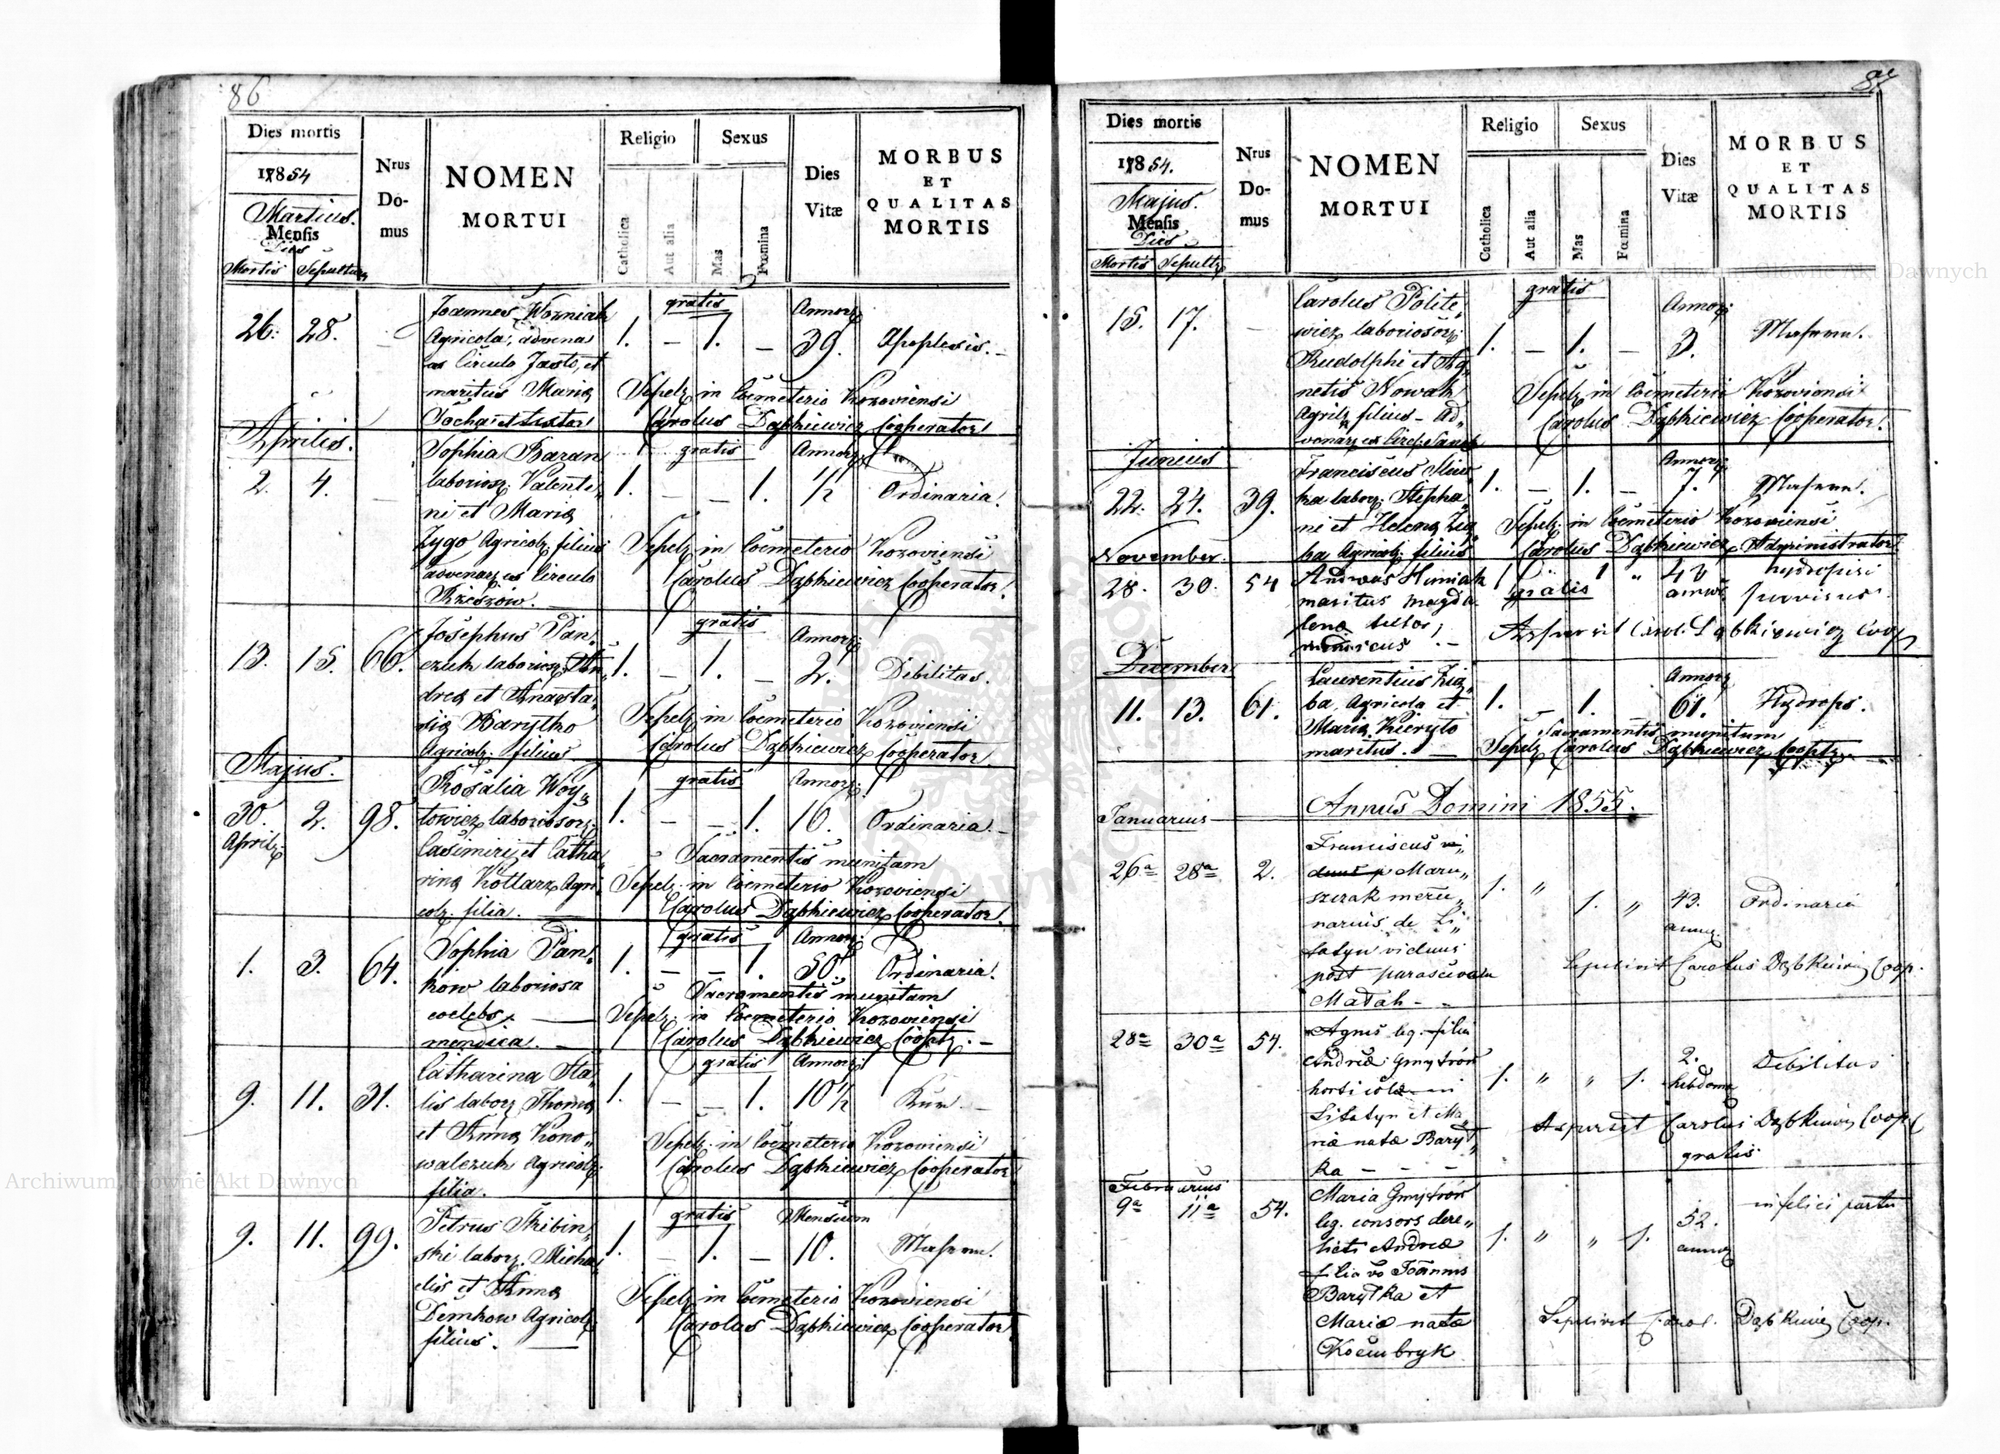 86
Dies mortis
1854
Martius.
Mensis
Dies
Mortis Sepulturæ
Nrus
Do-
mus
NOMEN
MORTUI
Religio
Catholica
Aut alia
Sexus
Mas
Fœmina
Dies
Vitæ
MORBUS
ET
QUALITAS
MORTIS
26. 28. —
Joannes Wozniak
Agricola, advena
ex Circulo Jasło, et
maritus Mariæ
Socha et sutor
gratis
1. — 1. —
Annor:
39.
Apoplexis. —
Sepelt: in Coemeterio Kozoviensi
Carolus Dąbkiewicz Cooperator
Aprilis.
2. 4. —
Sophia Baran
laborios: Valenti
ni et Mariæ
Zygo Agricol: filius
advenar: ex Circulo
Rzeszów. —
gratis
1. — — 1.
Annor:
1/2
Ordinaria.
Sepelt: in Coemeterio Kozoviensi
Carolus Dąbkiewicz Cooperator.
13. 15. 66.
Josephus Pan„
czuk laborios: An„
dreæ et Anasta„
siæ Barytko
Agricol: filius
gratis
1. — 1. —
Annor:
2.
Debilitas.
Sepelt: in Coemeterio Kozoviensi
Carolus Dąbkiewicz Cooperator
Majus.
30. 2. 98.
April:
Rosalia Woy„
towicz laboriosor:
Casimiri et Catha„
rinæ Kotlarz Agri
col: filia. —
gratis
1. — — 1.
Annor:
16.
Ordinaria. —
Sacramentis munitam
Sepel: in Coemeterio Kozoviensi
Carolus Dąbkiewicz Cooperator.
1. 3. 64.
Sophia Pan„
ków laboriosa
coelebs,
mendica. —
gratis
1. — — 1.
Annor:
50.
Ordinaria.
Sacramentis munitam
Sepelt: in Coemeterio Kozoviensi
Carolus Dąbkiewicz Coopt: —
9. 11. 31.
Catharina Ha„
lis labor: Thomæ
et Annæ Kono„
walczuk Agricol:
filia.
gratis
1. — — 1.
Annor:
10 1/2
Sepelt: in Coemeterio Kozoviensi
Carolus Dąbkiewicz Cooperator
9. 11. 99.
Petrus Skibin„
ski labor: Micha„
elis et Annæ
Demkow Agricol:
filius. —
gratis
1. — 1. —
Mensium
10.
Sepelt: in Coemeterio Kozoviensi
Carolus Dąbkiewicz Cooperator
Dies mortis
1854.
Majus.
Mensis
Dies
Mortis Sepultæ
Nrus
Do-
mus
NOMEN
MORTUI
Religio
Catholica
Aut alia
Sexus
Mas
Fœmina
Dies
Vitæ
MORBUS
ET
QUALITAS
MORTIS
15. 17. —
Carolus Polite„
wicz laboriosor:
Rudolphi et Ag„
netis Nowak
Agril: filius — ad„
gratis
1. — 1. —
Annor:
3.
Sepelt: in Coemeterio Kozoviensi
Carolus Dąbkiewicz Cooperator.
Junius
22. 24. 39.
Franciscus
labor: Stepha„
ni et Helenæ Zię„
ba Agricol: filius
1. — 1. —
Annor:
7.
Sepelt: in Coemeterio Kozoviensi
Carolus Dąbkiewicz Administrator
November.
28. 30. 54
Andreas
maritus Magda
lenæ sutor,
gratis
Carol: Dąbkiewicz Coop
December
11. 13. 61.
Laurentius Zię„
ba, Agricola et
Mariæ Kieryto
maritus. —
1. 1.
Annor:
61.
Hydrops.
Sacramentis munitum
Sepelt: Carolus Dąbkiewicz Coopt:
Annus Domini 1855.
Januarius
26ª 28ª 2.
Franciscus vi„
Maru„
szczak mercu„
narius de Li„
tatyn viduus
post parascevam
Matah — —
1. „ 1. „
43.
annor:
Ordinaria
Sepelivit Carolus Dąbkiewicz Coop.
28ª 30ª 54.
Agnis leg. filia
Andreæ Gmytrów
horticolæ in
Litatyn et Ma„
riæ natæ Baryt„
ka — — —
1. „ „ 1.
2.
hebdoma
Debilitas
Aspersit Carolus Dąbkiewicz Coop
gratis
Februarius
9ª 11ª 54.
Maria Gmytrów
leg. consors dere„
licti Andreæ
filia vo Joannis
Barytka et
Mariæ natæ
1. „ „ 1.
52.
annor
infelici partu
Sepelivit Carol. Dąbkiewicz Coop.
Archiwum Główne Akt Dawnych
Archiwum Główne Akt Dawnych